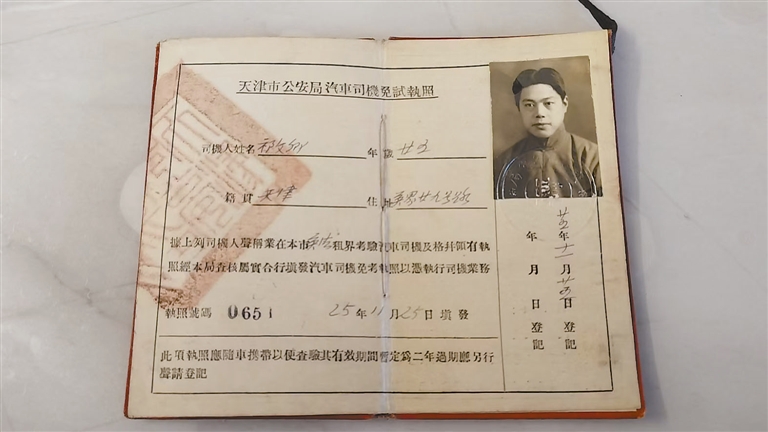 天津市公安局汽車司機免試執照
司機人姓名 年歲 廿五
籍貫 天津 住址 英界廿九号路
據上列司機人聲稱業在本市 租界考驗汽車司機及格幷領有執
照經本局查核屬實合行塡發汽車司機免考執照以憑執行司機業務
執照號碼 0651 25年11月25日塡發
此項執照應隨車携帶以便查驗其有效期間暫定爲二年過期應另行
聲請登記
廿五年十一月廿五日登記
年 月 日登記